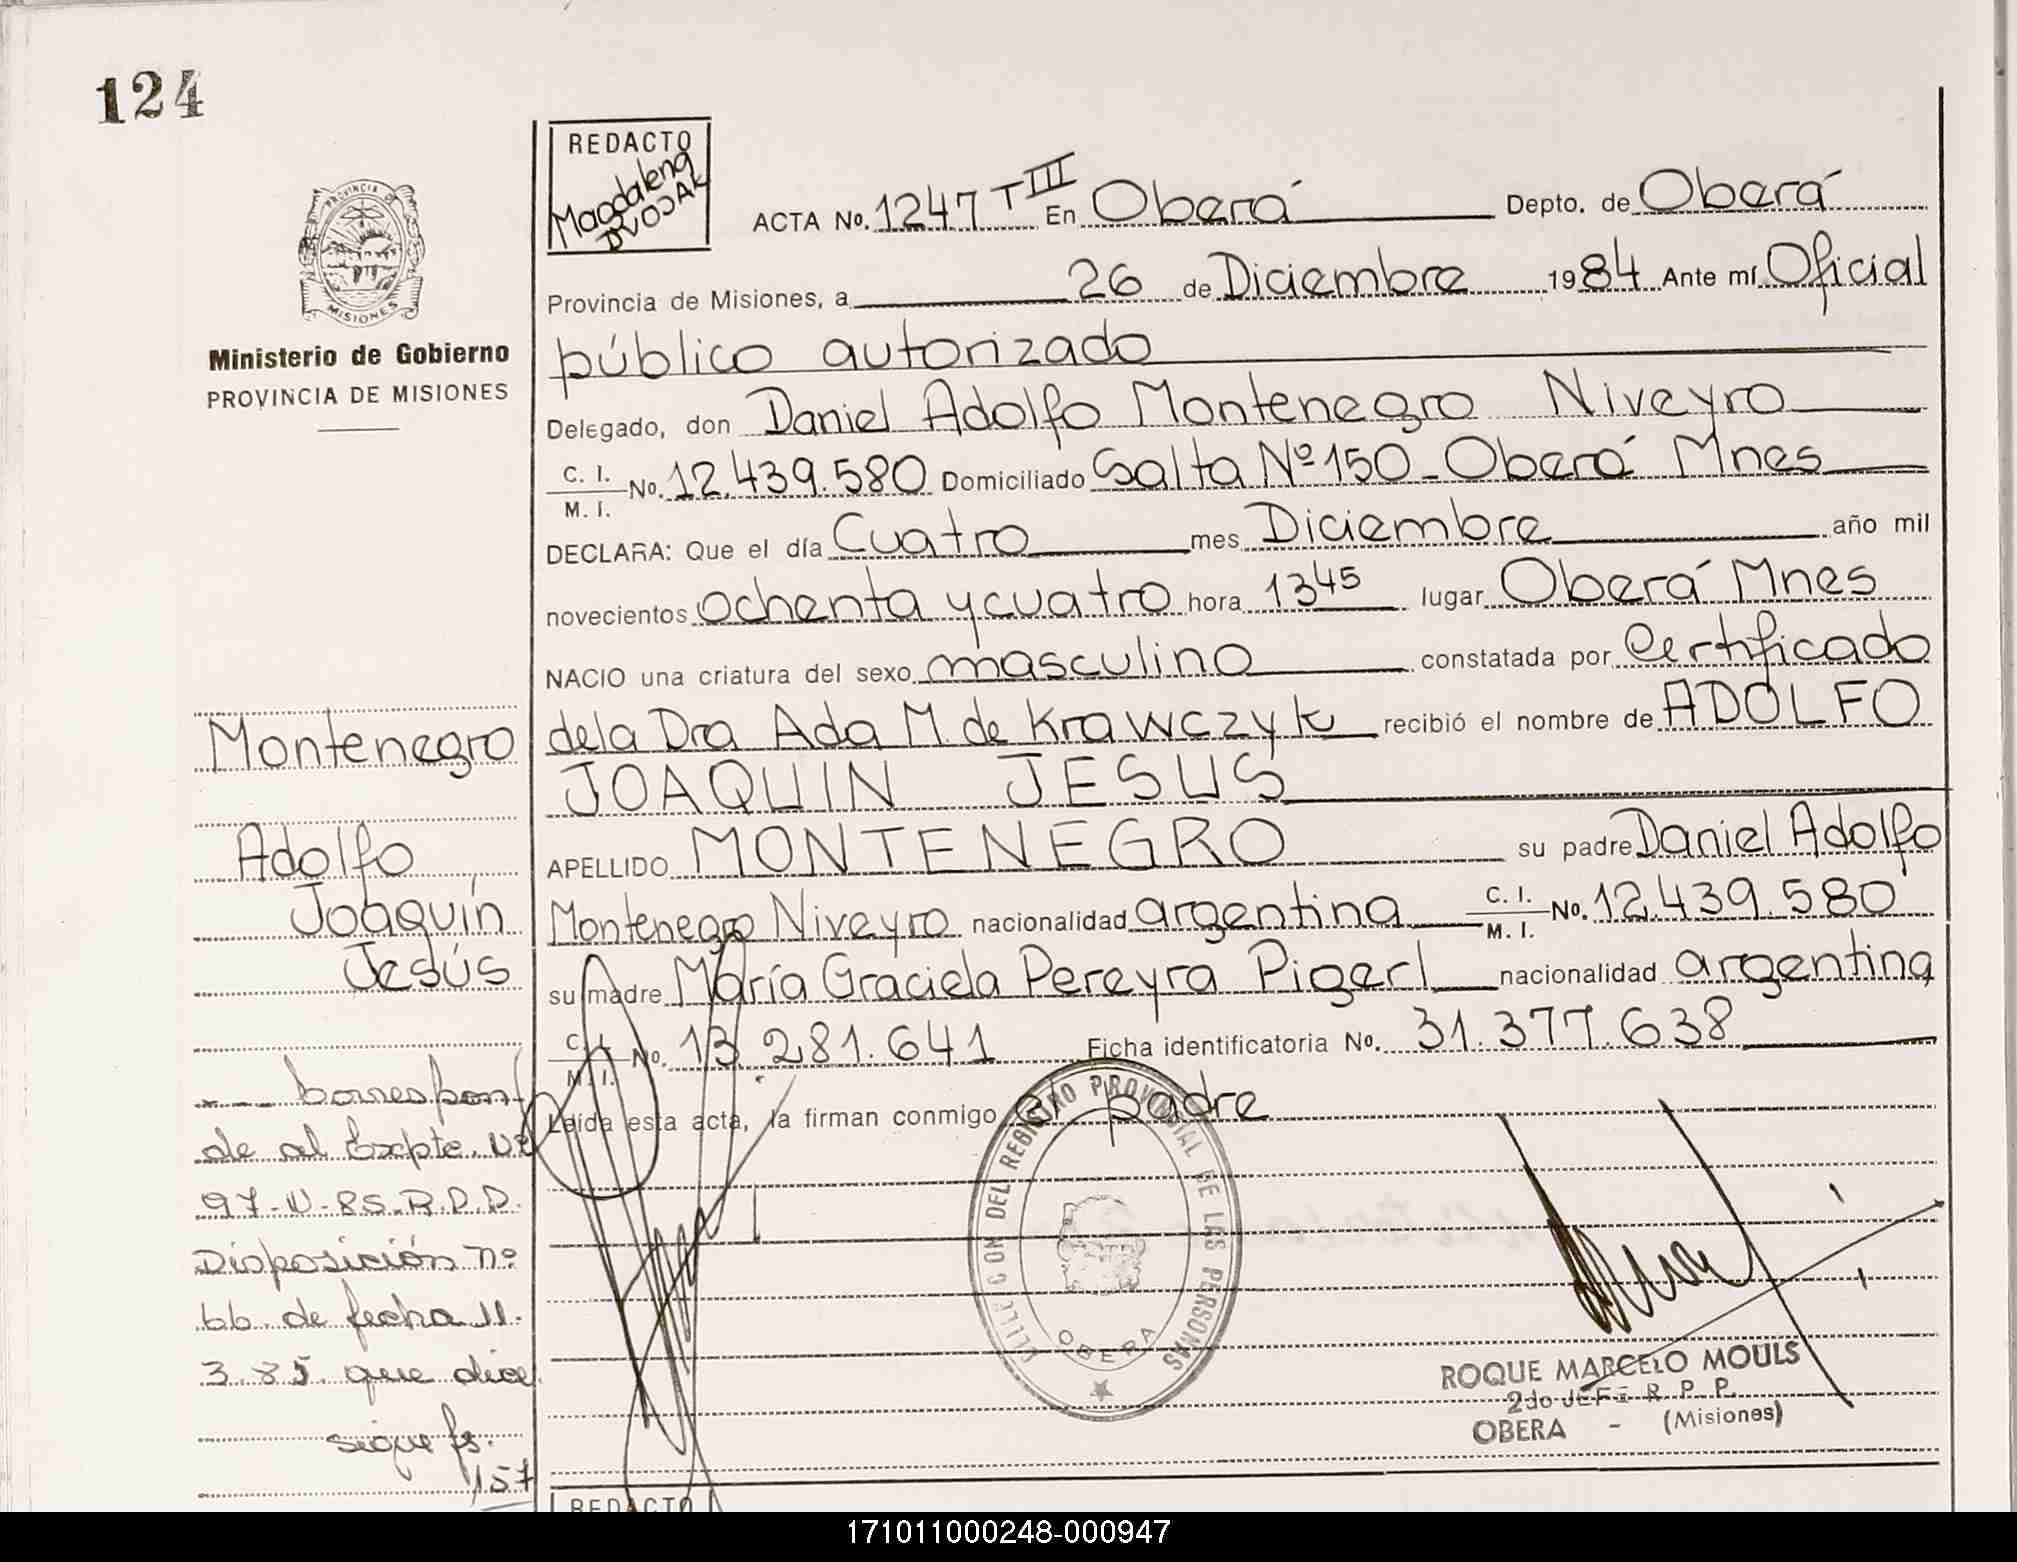 124
PROVINCIA DE
MISIONES
Ministerio de Gobierno
PROVINCIA DE MISIONES
REDACTO
Magdaleng
DVOJAK
ACTA No. 1247 T III En Oberá Depto. de Oberá
Provincia de Misiones, a 26 de Diciembre 1984 Ante mí Oficial
público autorizado
Delegado, don Daniel Adolfo Montenegro Niveyro
C. I.
M. I. No. 12.439.580 Domiciliado Salta Nº 150 - Oberá Mnes
DECLARA: Que el día Cuatro mes Diciembre año mil
novecientos ochenta y cuatro hora 13 45 lugar Oberá Mnes
NACIO una criatura del sexo masculino constatada por Certificado
de la Dra Ada M. de Krawczyk recibió el nombre de ADOLFO
JOAQUIN JESUS
APELLIDO MONTENEGRO su padre Daniel Adolfo
Montenegro Niveyro nacionalidad argentina C. I. M. I. No. 12.439.580
su madre María Graciela Pereyra Pigerl nacionalidad argentina
C. I.
M. I. No. 13.281.641 Ficha identificatoria No. 31.377.638
Leída esta acta, la firman conmigo el Padre
Montenegro
Adolfo
Joaquín
Jesús
Correspon
de al Expte. Nº
97-N-85.R.P.P.
Disposición nº
66 de fecha 11.
3.85 que dice
sigue fs.
157
DELEGACION DEL REGISTRO PROVINCIAL DE LAS PERSONAS
OBERA
ROQUE MARCELO MOULS
2do JEFE R. P. P.
OBERA - (Misiones)
REDACTO
171011000248-000947